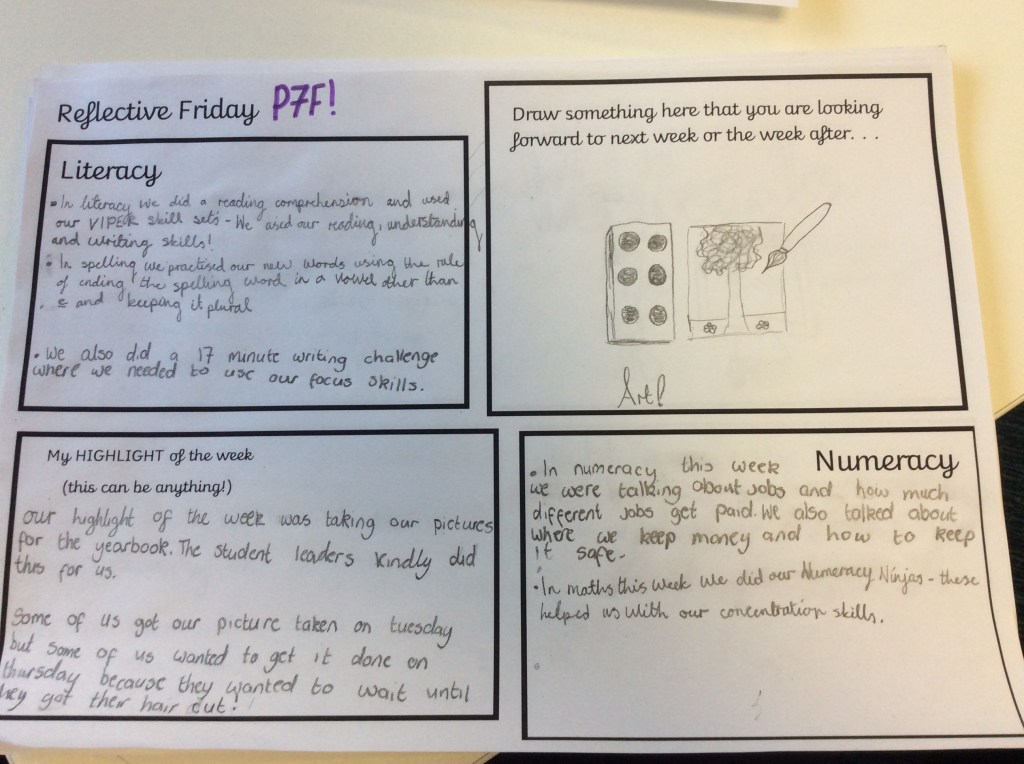 Reflective Friday P7F!
Literacy
• In literacy we did a reading comprehension and used
our VIPER skill sets - We used our reading, understanding
and writing skills!
• In spelling we practised our new words using the rule
of ending the spelling word in a vowel other than
e and keeping it plural
• We also did a 17 minute writing challenge
where we needed to use our focus skills.
Draw something here that you are looking
forward to next week or the week after. . .
Art!
My HIGHLIGHT of the week
(this can be anything!)
our highlight of the week was taking our pictures
for the yearbook. The student leaders kindly did
this for us.
Some of us got our picture taken on tuesday
but some of us wanted to get it done on
thursday because they wanted to wait until
they got their hair cut!
Numeracy
• In numeracy this week
we were talking about jobs and how much
different jobs get paid. We also talked about
where we keep money and how to keep
it safe.
• In maths this week we did our Numeracy Ninjas - these
helped us with our concentration skills.